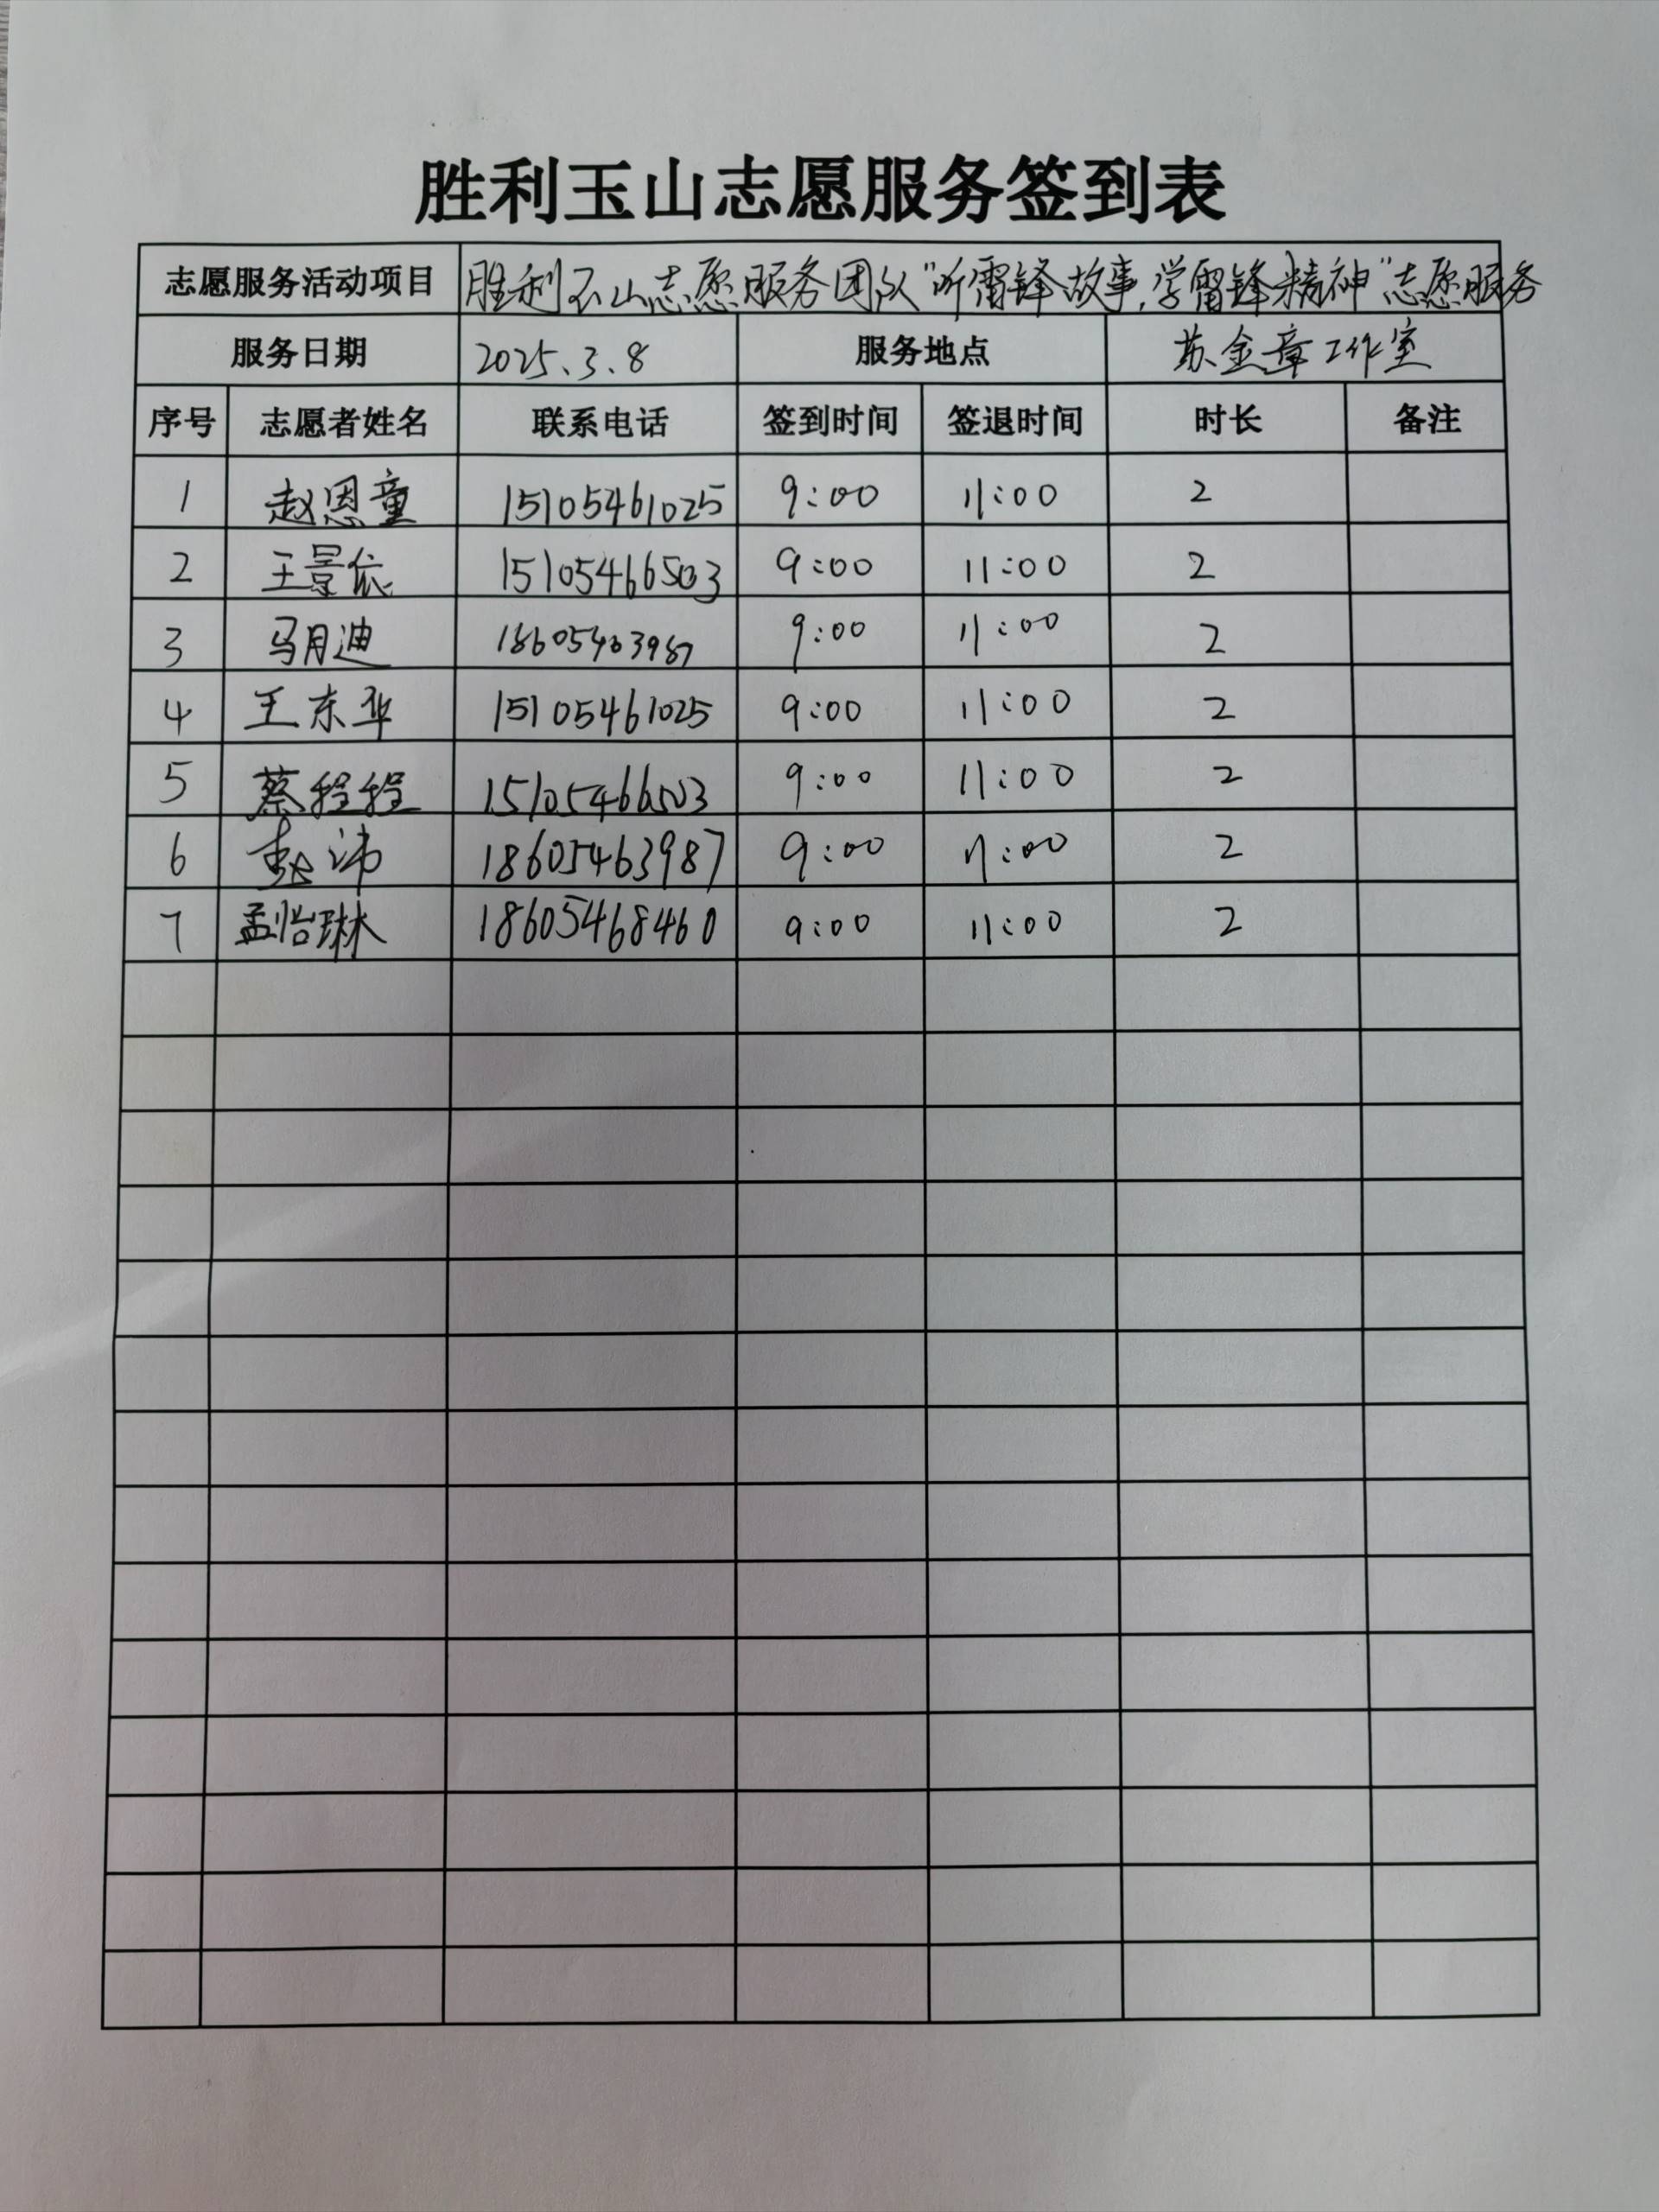 胜利玉山志愿服务签到表
志愿服务活动项目 胜利玉山志愿服务团队"听雷锋故事,学雷锋精神"志愿服务
服务日期 2025.3.8 服务地点 苏金章工作室
序号 志愿者姓名 联系电话 签到时间 签退时间 时长 备注
1 赵恩童 15105461025 9:00 11:00 2
2 王景依 15105466503 9:00 11:00 2
3 马月迪 18605463987 9:00 11:00 2
4 王东华 15105461025 9:00 11:00 2
5 蔡程程 15105466503 9:00 11:00 2
6 18605463987 9:00 11:00 2
7 孟怡琳 18605468460 9:00 11:00 2